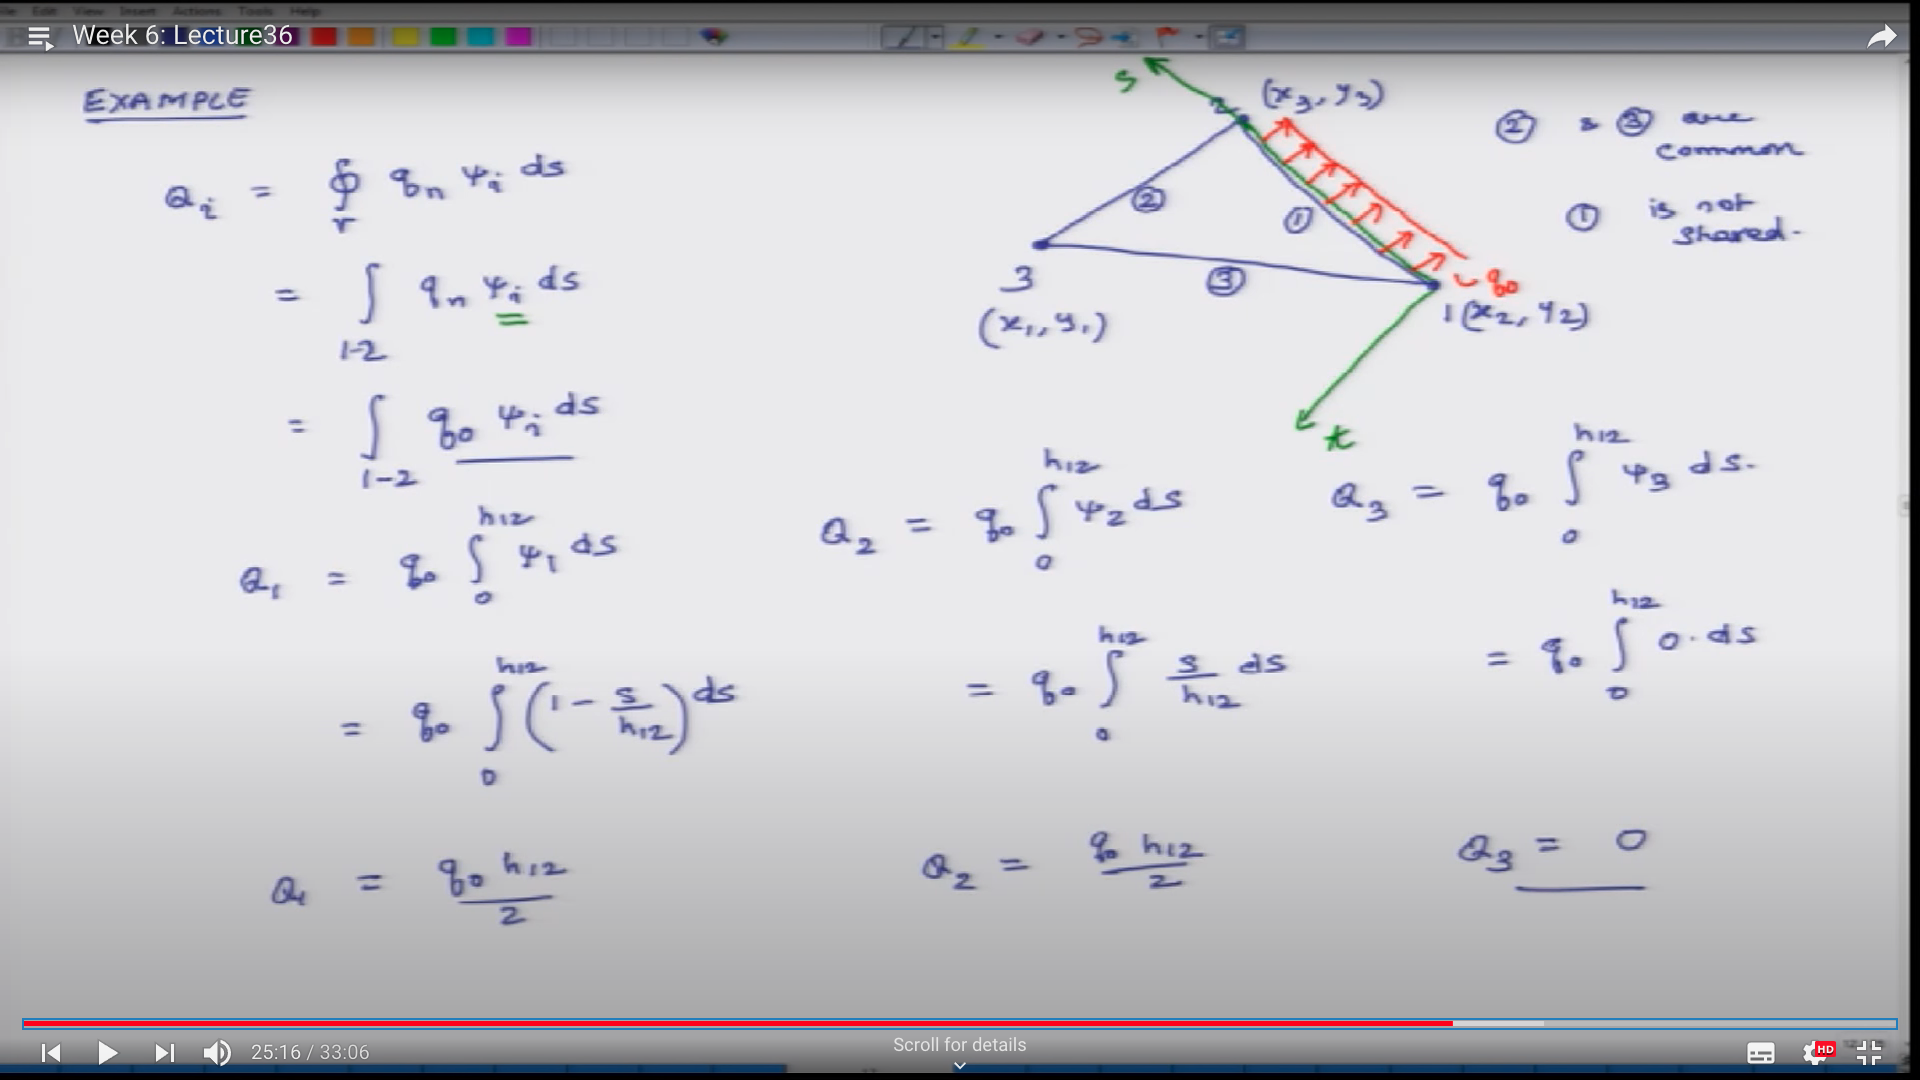 File Edit View Insert Actions Tools Help
Week 6: Lecture36
EXAMPLE
Q_i = ∮_Γ q_n ψ_i ds
= ∫_{1-2} q_n ψ_i ds
= ∫_{1-2} q_0 ψ_i ds
Q_1 = q_0 ∫_0^{h_12} ψ_1 ds
= q_0 ∫_0^{h_12} (1 - s/h_12) ds
Q_1 = q_0 h_12 / 2
s
2 (x_3, y_3)
②
①
③
3
(x_1, y_1)
q_0
1 (x_2, y_2)
t
② & ③ are
common
① is not
shared.
Q_2 = q_0 ∫_0^{h_12} ψ_2 ds
= q_0 ∫_0^{h_12} s/h_12 ds
Q_2 = q_0 h_12 / 2
Q_3 = q_0 ∫_0^{h_12} ψ_3 ds.
= q_0 ∫_0^{h_12} 0. ds
Q_3 = 0
25:16 / 33:06
Scroll for details
HD